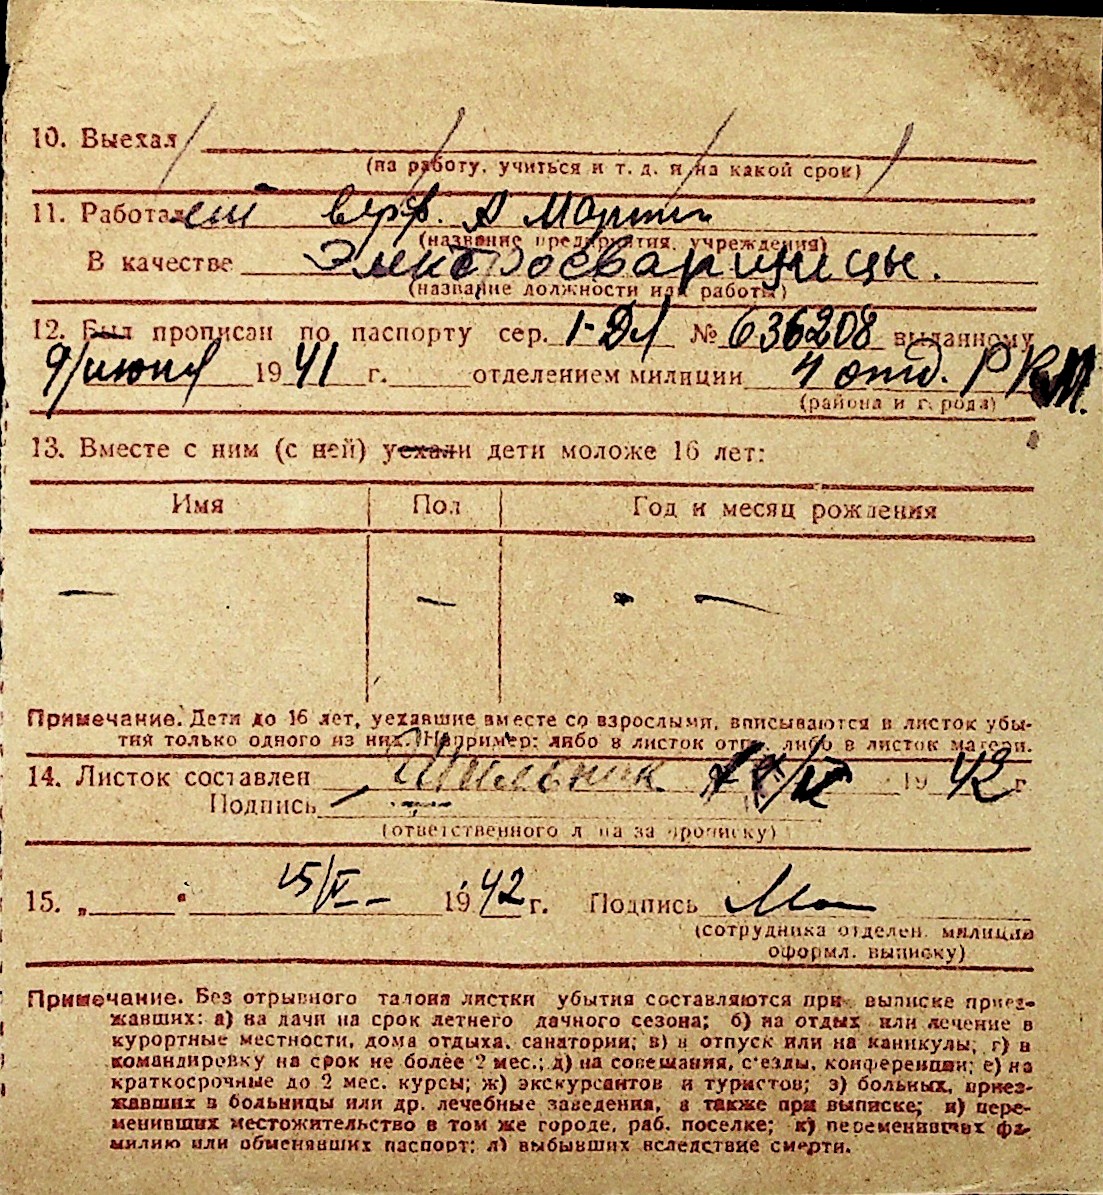 10. Выехал
(на работу, учиться и т. д. и на какой срок)
11. Работал верф. А Марти
(название предприятия, учреждения)
В качестве Электросварщицы.
(название должности или работы)
12. Был прописан по паспорту сер. № 636208 выданному
9/июня 1941 г. отделением милиции 4 отд. РКМ.
(района и города)
13. Вместе с ним (с ней) уехали дети моложе 16 лет:
Имя Пол Год и месяц рождения
Примечание. Дети до 16 лет, уехавшие вместе со взрослыми, вписываются в листок убы-
тия только одного из них. Например: либо в листок отца, либо в листок матери.
14. Листок составлен 1942 г
Подпись
(ответственного лица за прописку)
15. „ " 15/V- 1942 г. Подпись
(сотрудника отделен. милиции
оформл. выписку)
Примечание. Без отрывного талона листки убытия составляются при выписке приез-
жавших: а) на дачи на срок летнего дачного сезона; б) на отдых или лечение в
курортные местности, дома отдыха, санатории; в) в отпуск или на каникулы; г) в
командировку на срок не более 2 мес.; д) на совещания, с'езды, конференции; е) на
краткосрочные до 2 мес. курсы; ж) экскурсантов и туристов; з) больных, приез-
жавших в больницы или др. лечебные заведения, а также при выписке; и) пере-
менивших местожительство в том же городе, раб. поселке; к) переменивших фа-
милию или обменявших паспорт; л) выбывших вследствие смерти.